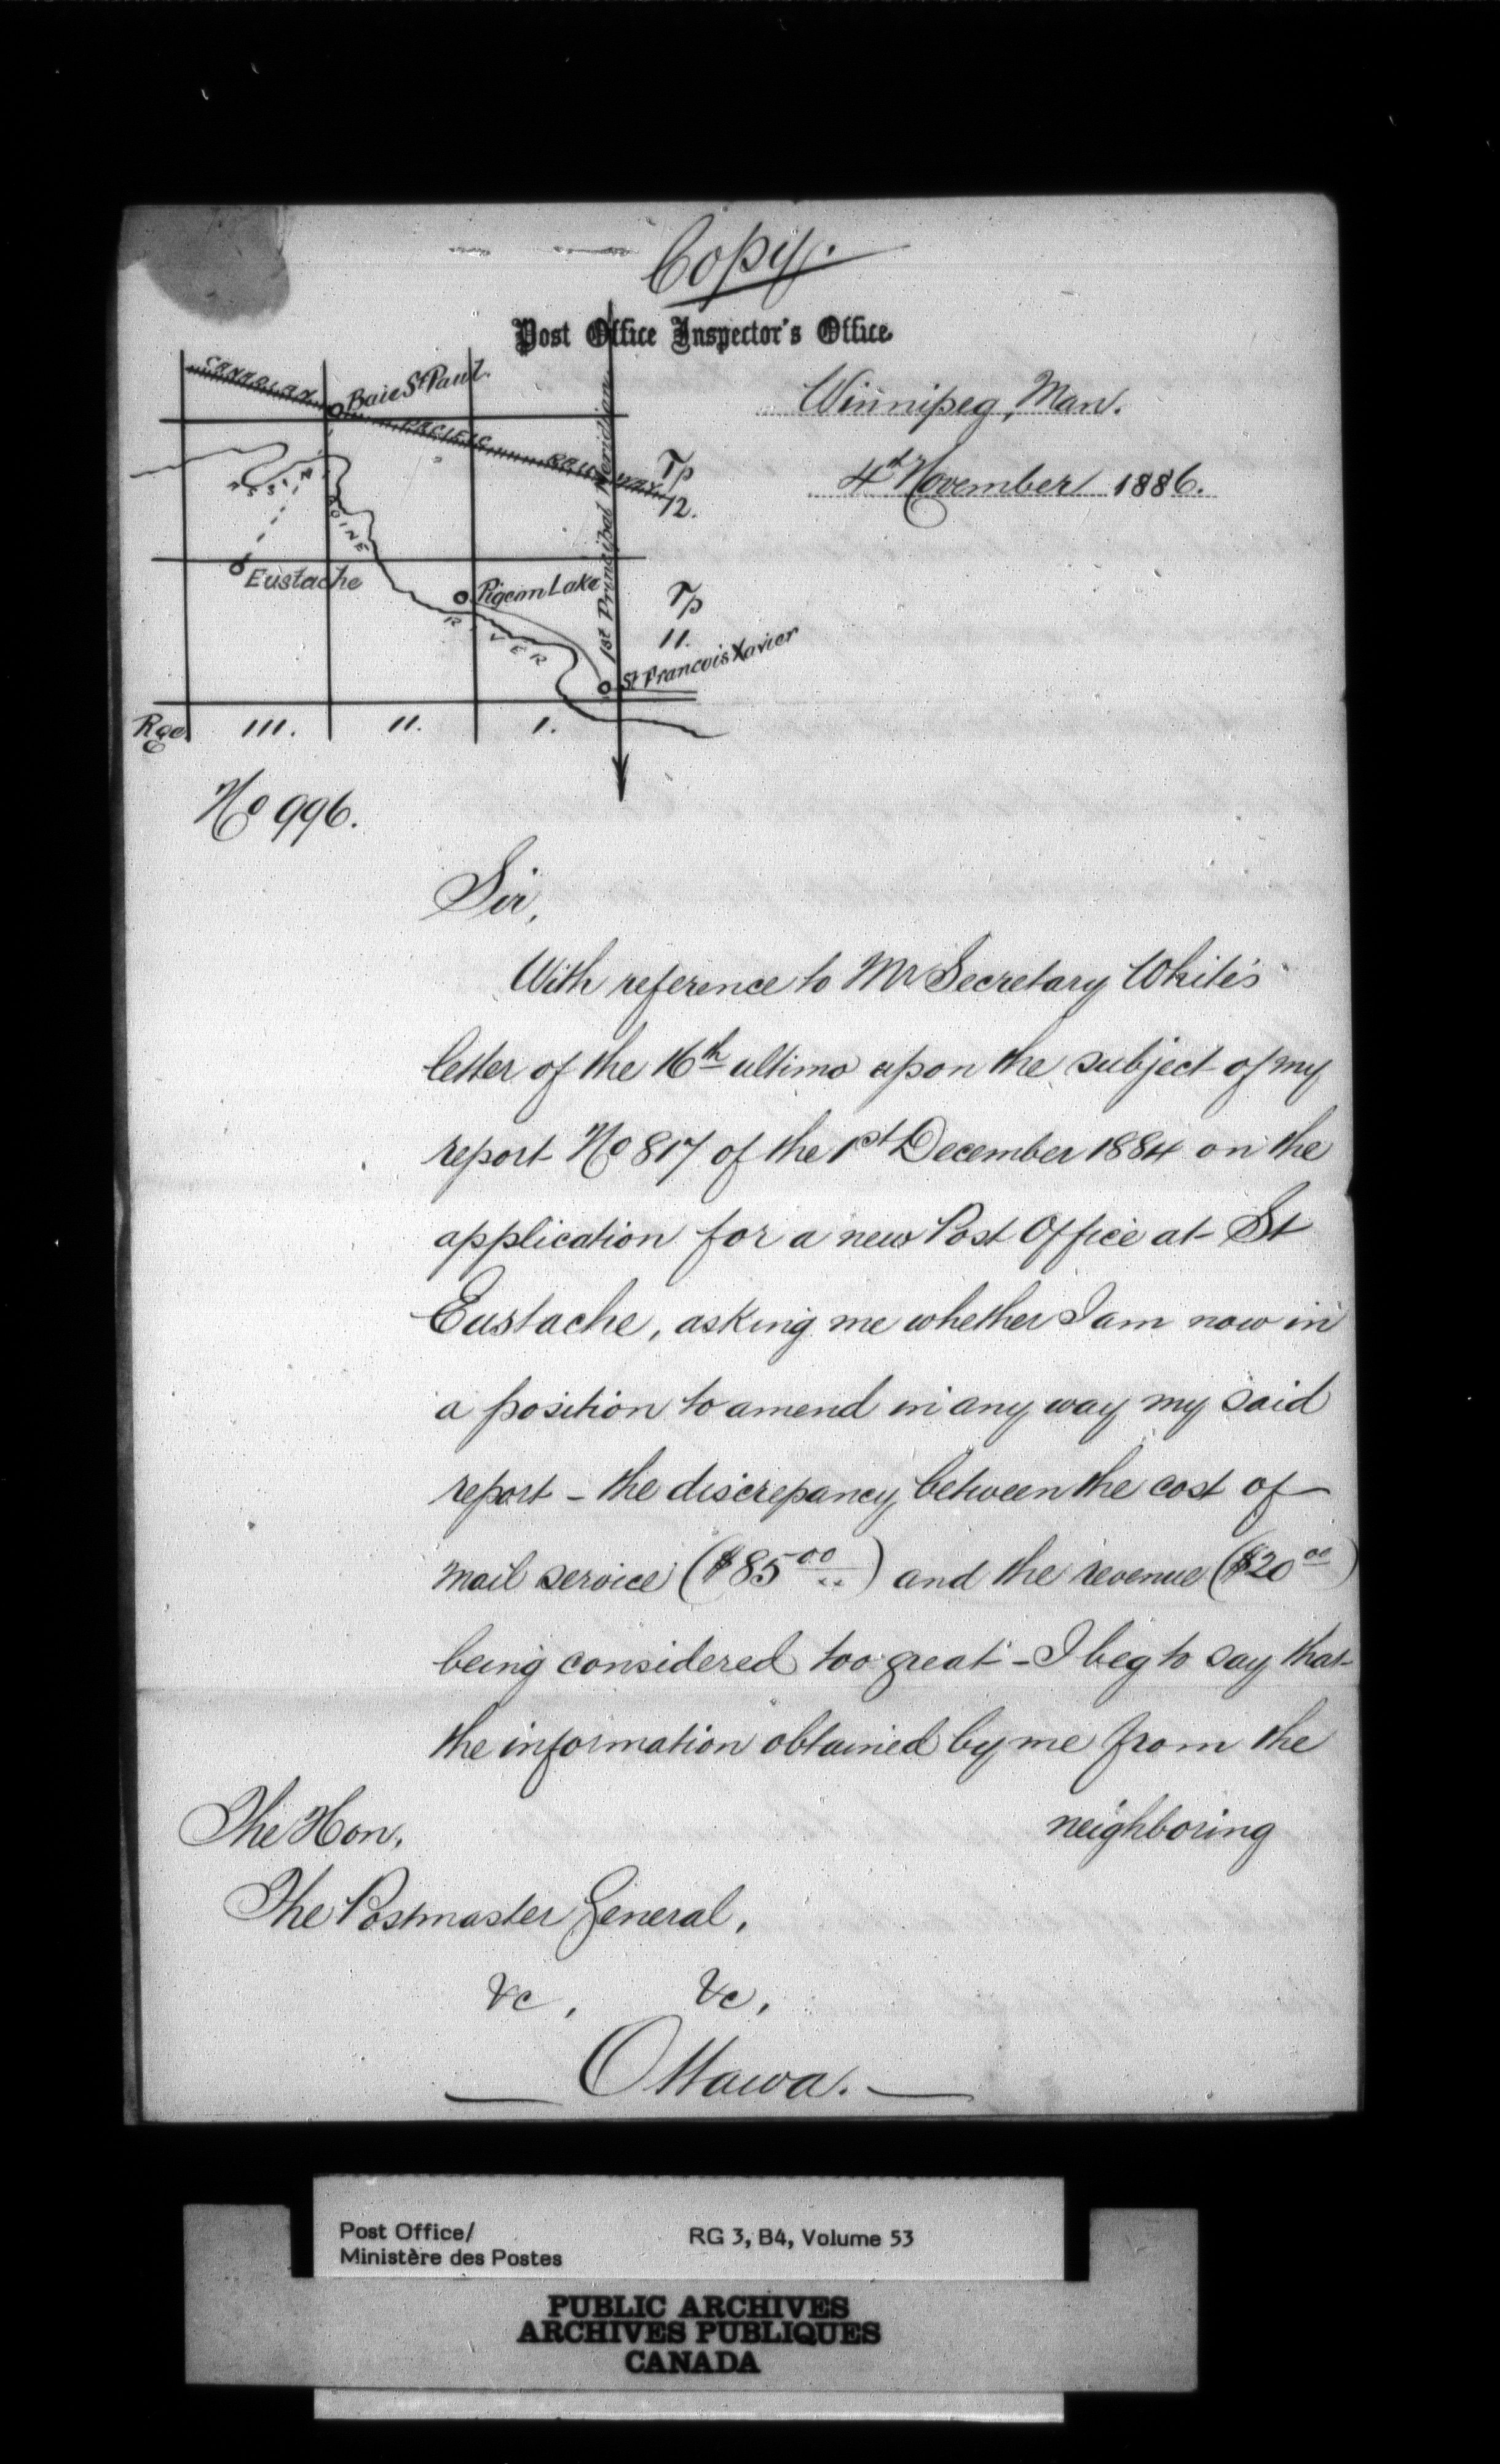 Copy.
Post Office Inspector's Office.
Winnipeg, Man.
4th November 1886.
CANADIAN PACIFIC RAILWAY
Baie St Paul.
ASSINIBOINE RIVER
Eustache
Pigeon Lake
St Francois Xavier
1st Principal Meridian
Tp
12.
Tp
11.
Rge III. II. I.
No 996.
Sir,
With reference to Mr Secretary White's
letter of the 16th ultimo upon the subject of my
report No 817 of the 1st December 1884 on the
application for a new Post Office at St
Eustache, asking me whether I am now in
a position to amend in any way my said
report - the discrepancy between the cost of
mail service ($85 00) and the revenue ($20 00)
being considered too great - I beg to say that
the information obtained by me from the
neighboring
The Hon,
The Postmaster General,
&c, &c,
Ottawa.
Post Office/
Ministère des Postes
RG 3, B4, Volume 53
PUBLIC ARCHIVES
ARCHIVES PUBLIQUES
CANADA